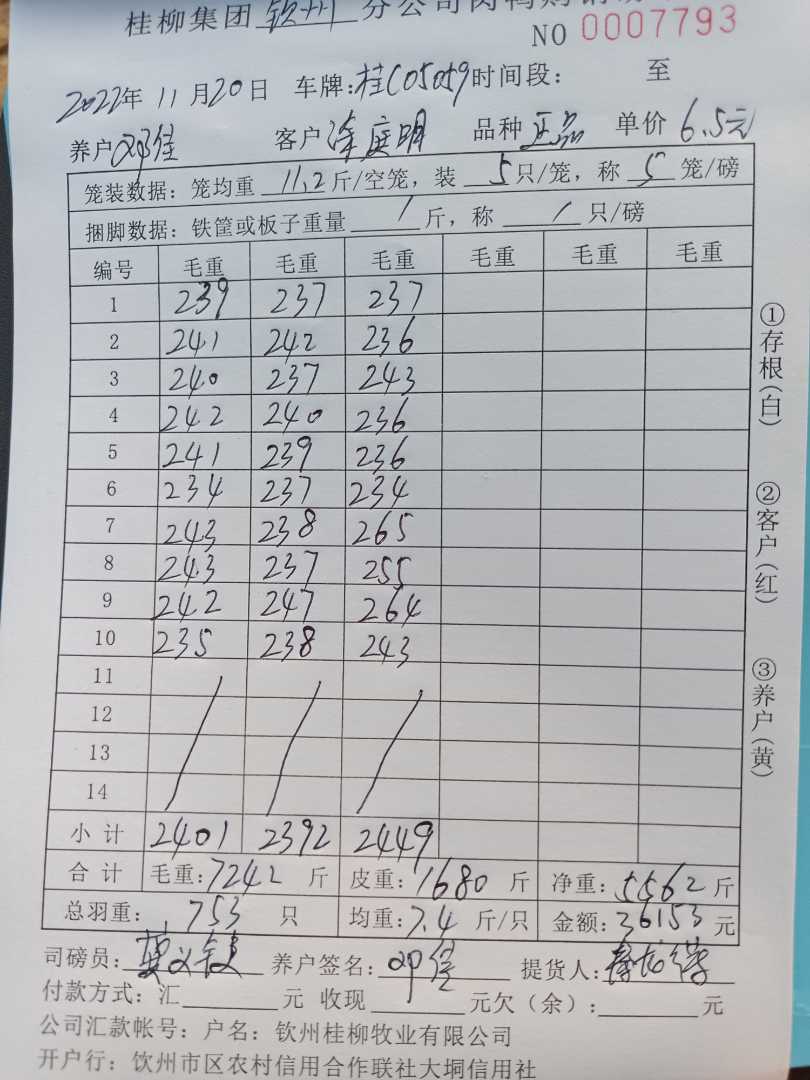 桂柳集团 钦州 分公司肉鸭购销
NO 0007793
2022年 11月20日 车牌:桂C05059时间段: 至
养户 邓佳 客户 涂庭明 品种 正品 单价 6.5元
笼装数据: 笼均重 11.2 斤/空笼, 装 5 只/笼, 称 5 笼/磅
捆脚数据: 铁筐或板子重量 / 斤, 称 / 只/磅
编号 毛重 毛重 毛重 毛重 毛重 毛重
1 239 237 237
2 241 242 236
3 240 237 243
4 242 240 236
5 241 239 236
6 234 237 234
7 243 238 265
8 243 237 255
9 242 247 264
10 235 238 243
11
12
13
14
小计 2401 2392 2449
合计 毛重:7242 斤 皮重:1680 斤 净重:5562 斤
总羽重: 753 只 均重:7.4 斤/只 金额:36153 元
司磅员: 养户签名: 邓佳 提货人:
付款方式: 汇 元 收现 元欠(余): 元
公司汇款帐号: 户名: 钦州桂柳牧业有限公司
开户行: 饮州市区农村信用合作联社大垌信用社
①存根(白) ②客户(红) ③养户(黄)